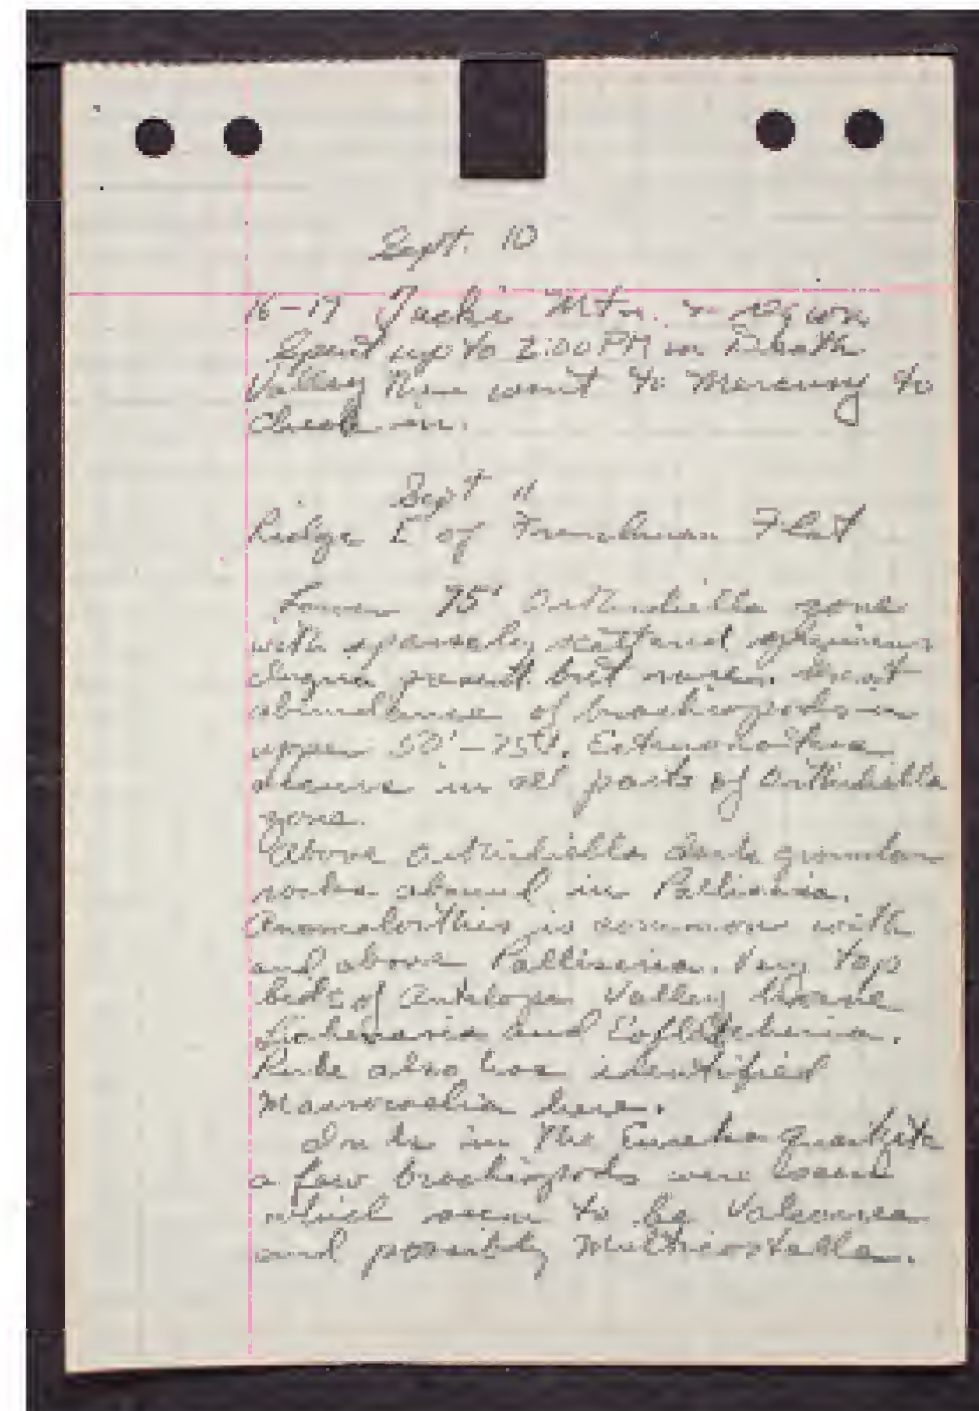 Sept. 10
16-17 Tucki Mtn. & region
Spent up to 2:00 PM in Death
Valley then went to Mercury to
check in.
Sept 11
Ridge E of Frenchman Flat
Lower 75' Orthidiella zone
with sparsely scattered specimens
present but rare. Great
abundance of brachiopods in
upper 50'-75'.
occurs in all parts of Orthidiella
zone.
Above Orthidiella dark granular
rocks abound in Palliseria.
Anomalorthis is common with
and above Palliseria. Very top
beds of Antelope Valley
Lichenaria and Eofletcheria.
also has identified
here.
in the Eureka quartzite
a few brachiopods were
which seem to be Valcourea
and possibly Multicostella.